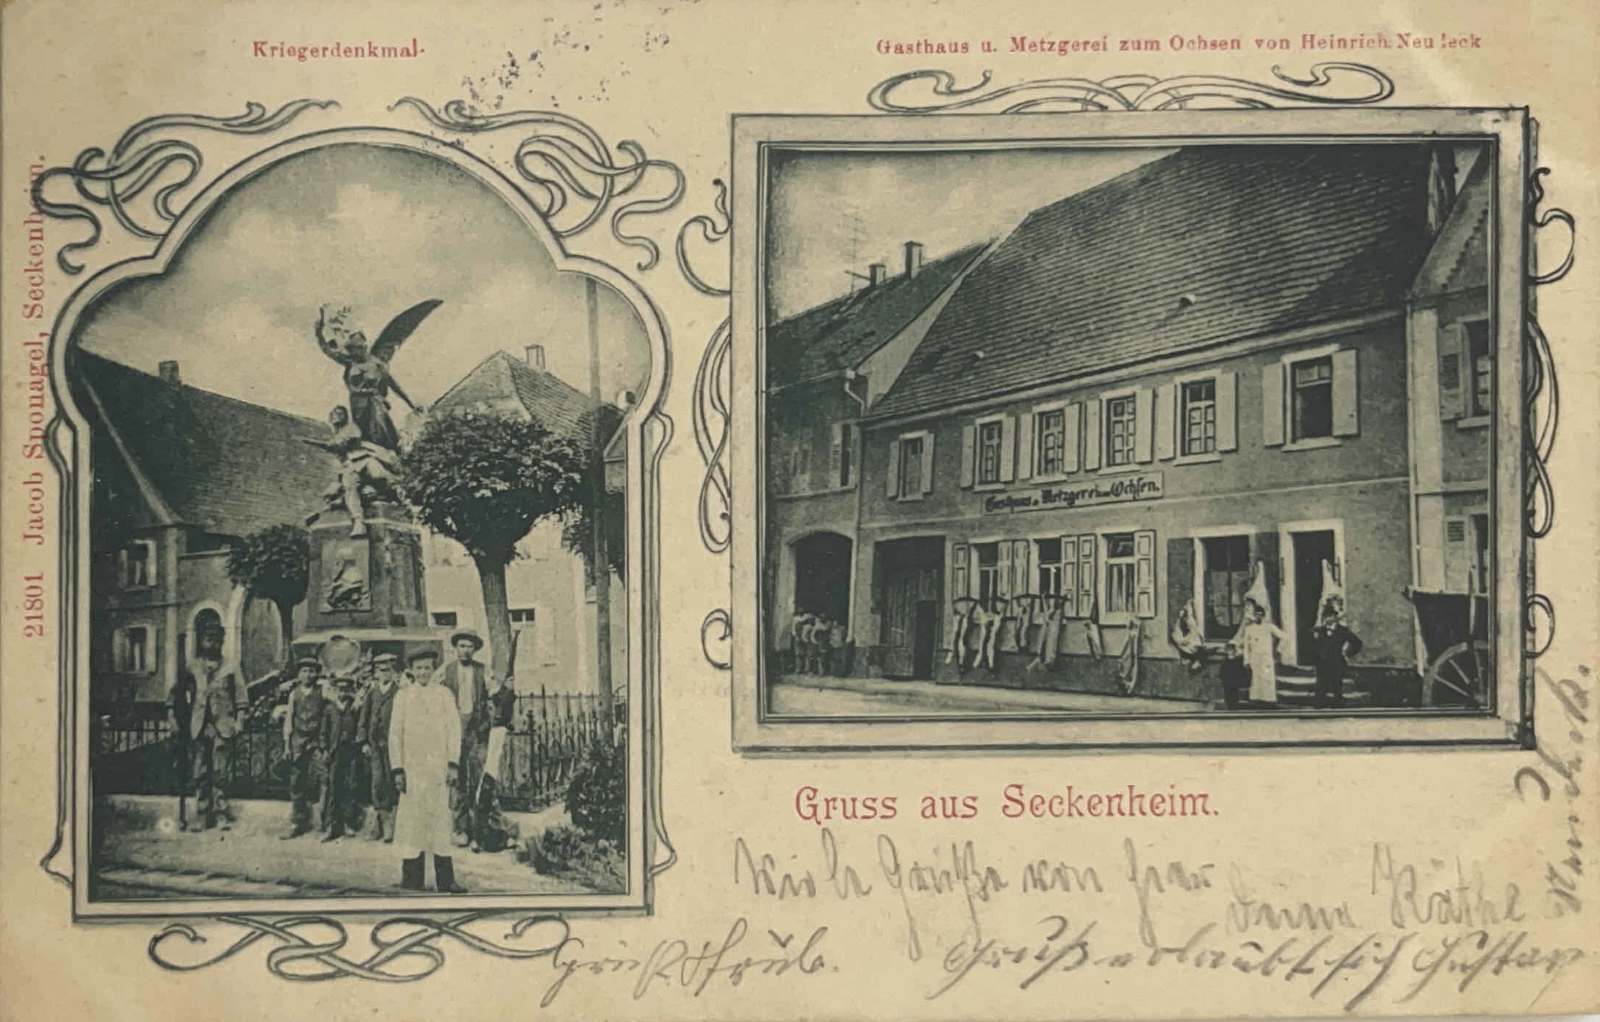 Kriegerdenkmal.
Gasthaus u. Metzgerei zum Ochsen von Heinrich
21801 Jacob Sponagel, Seckenheim.
Gasthaus u. Metzgerei zum Ochsen.
Gruss aus Seckenheim.
Viele Grüße von hier
Deine Käthe
Gruß erlaubt sich Gustav
Gruß